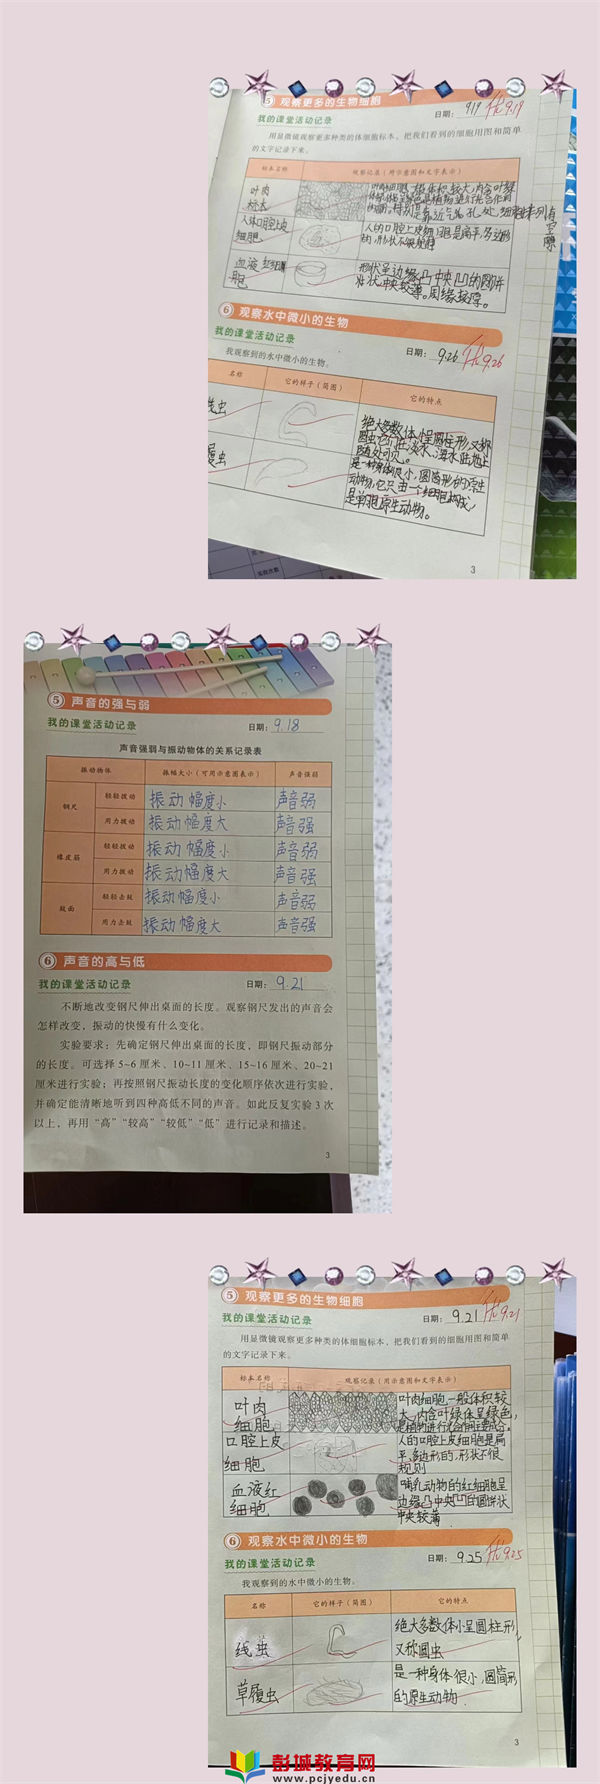 5 观察更多的生物细胞
我的课堂活动记录
日期: 9.19 优9.19
用显微镜观察更多种类的体细胞标本，把我们看到的细胞用图和简单
的文字记录下来。
标本名称 观察记录（用示意图和文字表示）
叶肉
标本
人体口腔上皮
细胞
人的口腔上皮细胞是扁平,多边形
的,形状不很规则
血液红细胞
形状呈边缘凸中央凹的圆饼
状,中央较薄。周缘较厚。
6 观察水中微小的生物
我的课堂活动记录
日期: 9.26 优9.26
我观察到的水中微小的生物。
名称 它的样子（简图） 它的特点
线虫
绝大多数体小呈圆柱形,又称
圆虫它们在淡水、海水陆地上
随处可见。
履虫
是一种身体很小,圆筒形的原生
动物,它只由一个细胞构成,
是单胞原生动物。
3
5 声音的强与弱
我的课堂活动记录
日期: 9.18
声音强弱与振动物体的关系记录表
振动物体 振幅大小（可用示意图表示） 声音强弱
钢尺 轻轻拨动 振动幅度小 声音弱
用力拨动 振动幅度大 声音强
橡皮筋 轻轻拨动 振动幅度小 声音弱
用力拨动 振动幅度大 声音强
鼓面 轻轻击鼓 振动幅度小 声音弱
用力击鼓 振动幅度大 声音强
6 声音的高与低
我的课堂活动记录
日期: 9.21
不断地改变钢尺伸出桌面的长度。观察钢尺发出的声音会
怎样改变，振动的快慢有什么变化。
实验要求：先确定钢尺伸出桌面的长度，即钢尺振动部分
的长度。可选择5~6厘米、10~11厘米、15~16厘米、20~21
厘米进行实验；再按照钢尺振动长度的变化顺序依次进行实验，
并确定能清晰地听到四种高低不同的声音。如此反复实验3次
以上，再用“高”“较高”“较低”“低”进行记录和描述。
3
5 观察更多的生物细胞
我的课堂活动记录
日期: 9.21 优9.21
用显微镜观察更多种类的体细胞标本，把我们看到的细胞用图和简单
的文字记录下来。
标本名称 观察记录（用示意图和文字表示）
叶肉
细胞
叶肉细胞一般体积较
大,内含叶绿体呈绿色,
是植物进行光合作用主要成分。
口腔上皮
细胞
人的口腔上皮细胞是扁
平,多边形的,形状不很
规则
血液红
细胞
哺乳动物的红细胞呈
边缘凸中央凹的圆饼状
中央较薄
6 观察水中微小的生物
我的课堂活动记录
日期: 9.25 优9.25
我观察到的水中微小的生物。
名称 它的样子（简图） 它的特点
线虫
绝大多数体小呈圆柱形,
又称圆虫
草履虫
是一种身体很小,圆筒形
的原生动物
3
彭城教育网
www.pcjyedu.cn